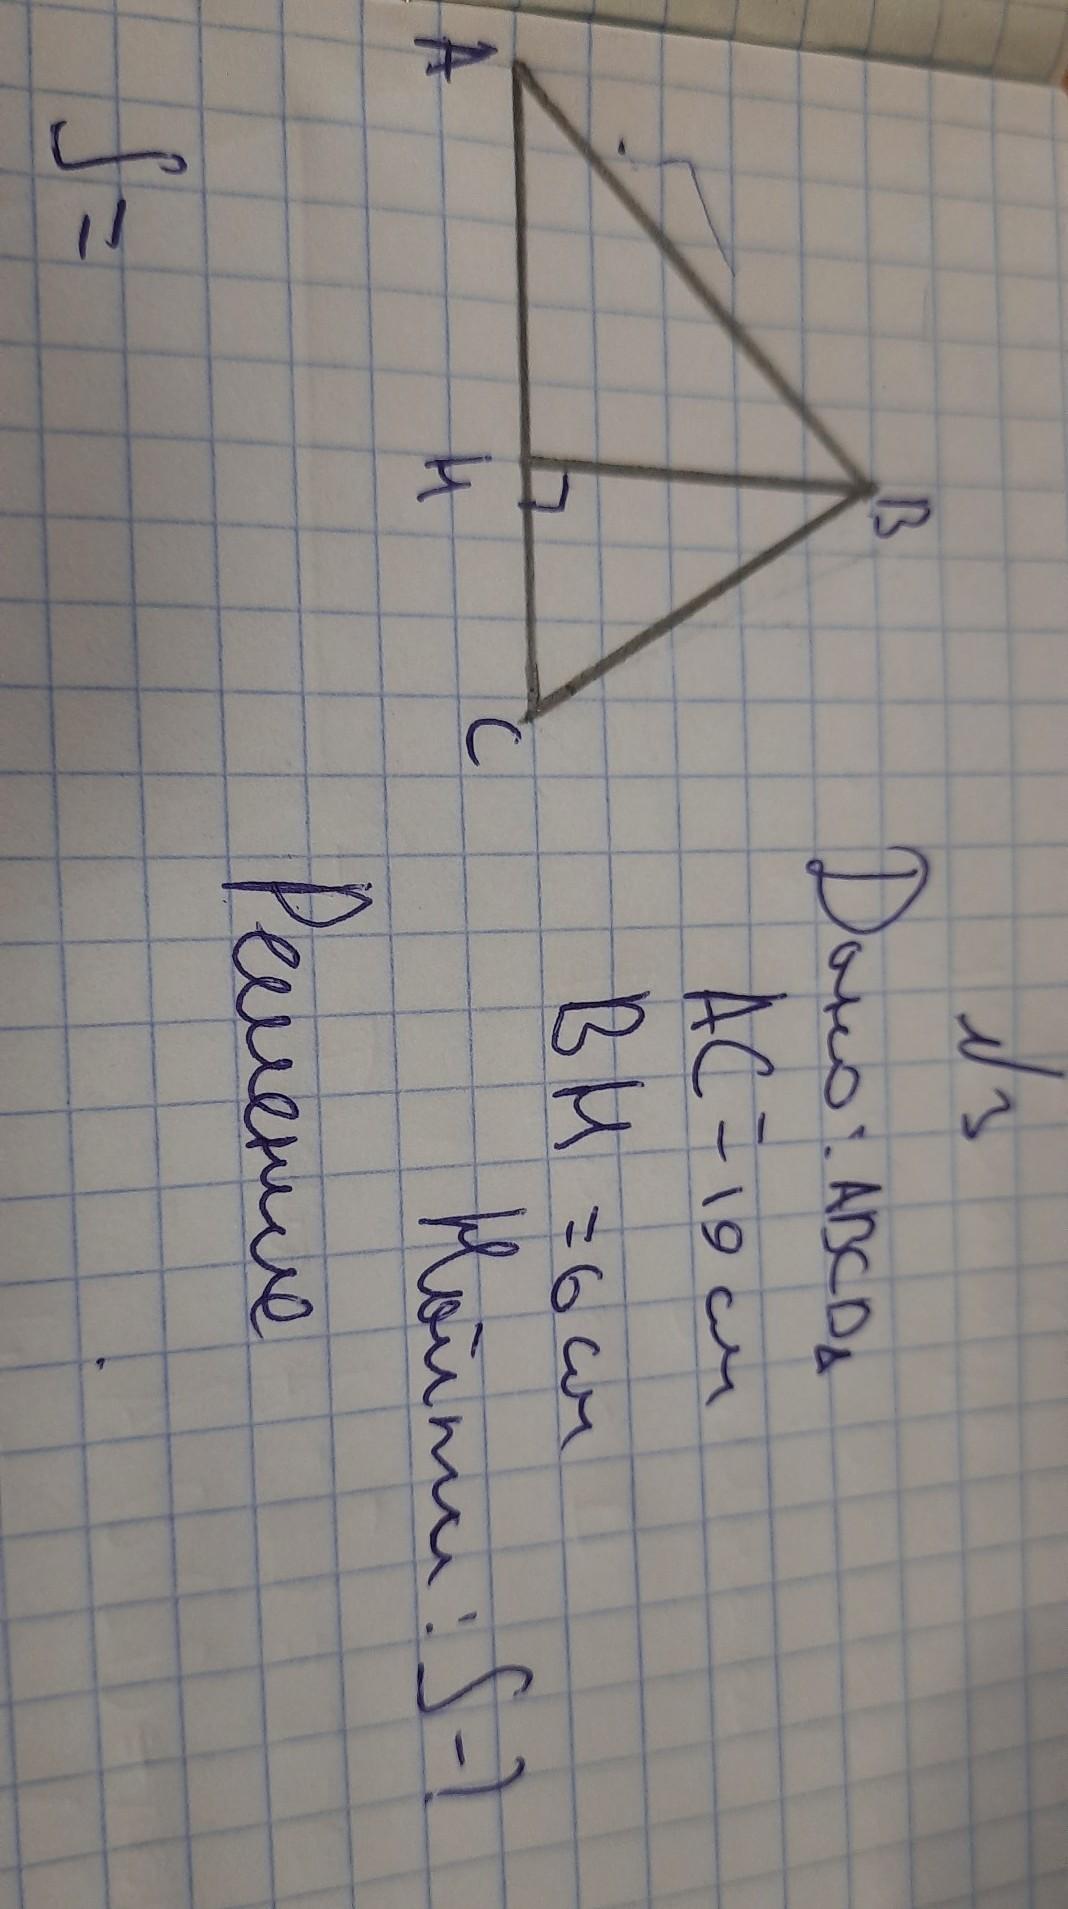 №3
B
A
H
C
Дано: ABCDΔ
AC = 10 см
BH = 6 см
Найти: S - ?
Решение
S =